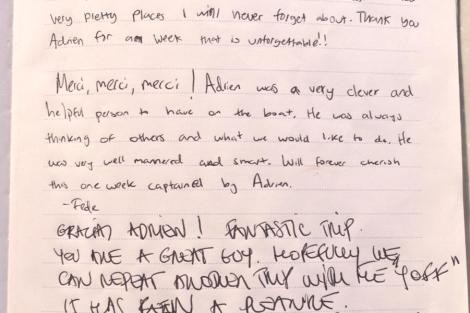 very pretty places I will never forget about. Thank you
Adrien for a week that is unforgettable!!
Merci, merci, merci! Adrien was a very clever and
helpful person to have on the boat. He was always
thinking of others and what we would like to do. He
was very well mannered and smart. Will forever cherish
this one week captained by Adrien.
-Fede
GRACIAS ADRIEN! FANTASTIC TRIP.
YOU ARE A GREAT GUY. HOPEFULLY WE
CAN REPEAT ANOTHER TRIP WITH THE "YOFF"
IT HAS BEEN A PLEASURE.